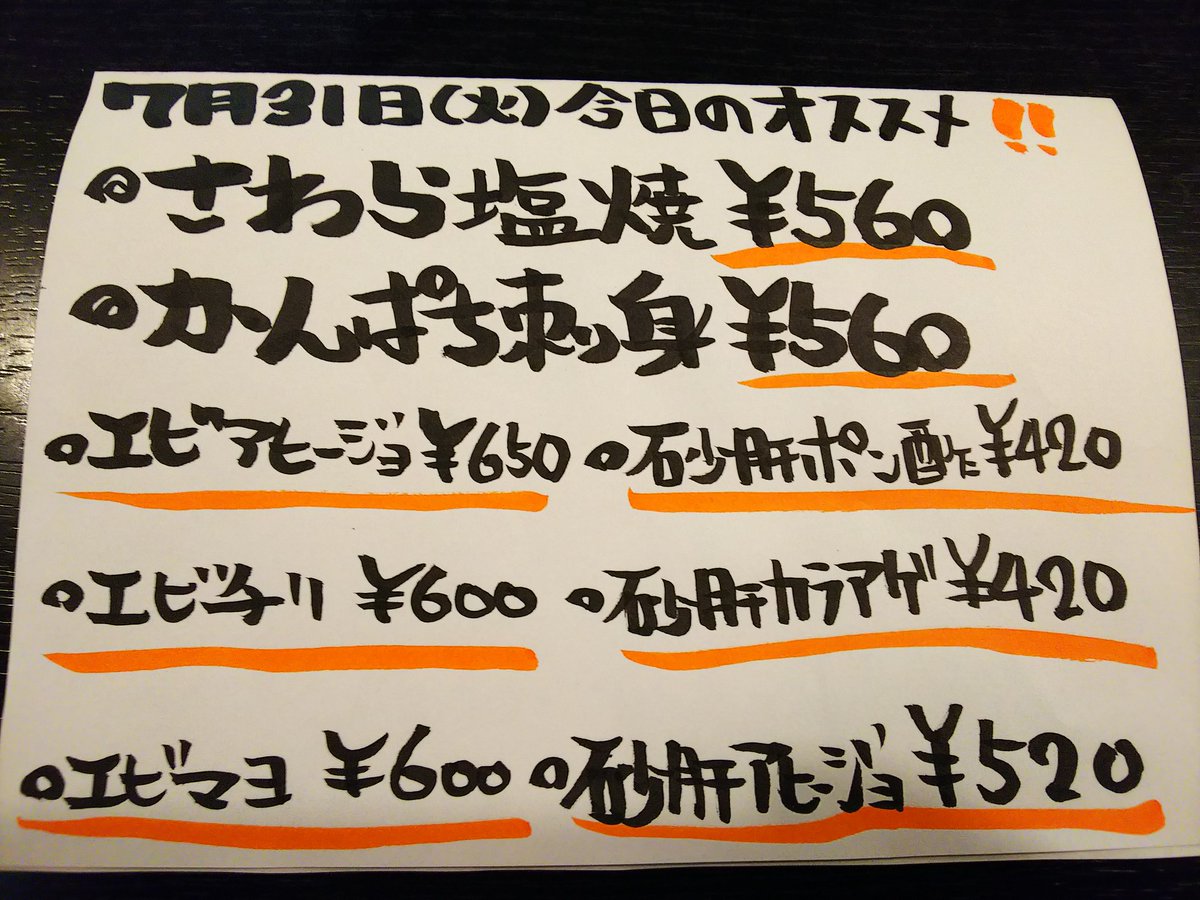 7月31日(火)今日のオススメ!!
◎さわら塩焼¥560
◎かんぱち刺身¥560
○エビアヒージョ¥650 ○砂肝ポン酢¥420
○エビチリ ¥600 ○砂肝カラアゲ¥420
○エビマヨ ¥600 ○砂肝アヒージョ¥520